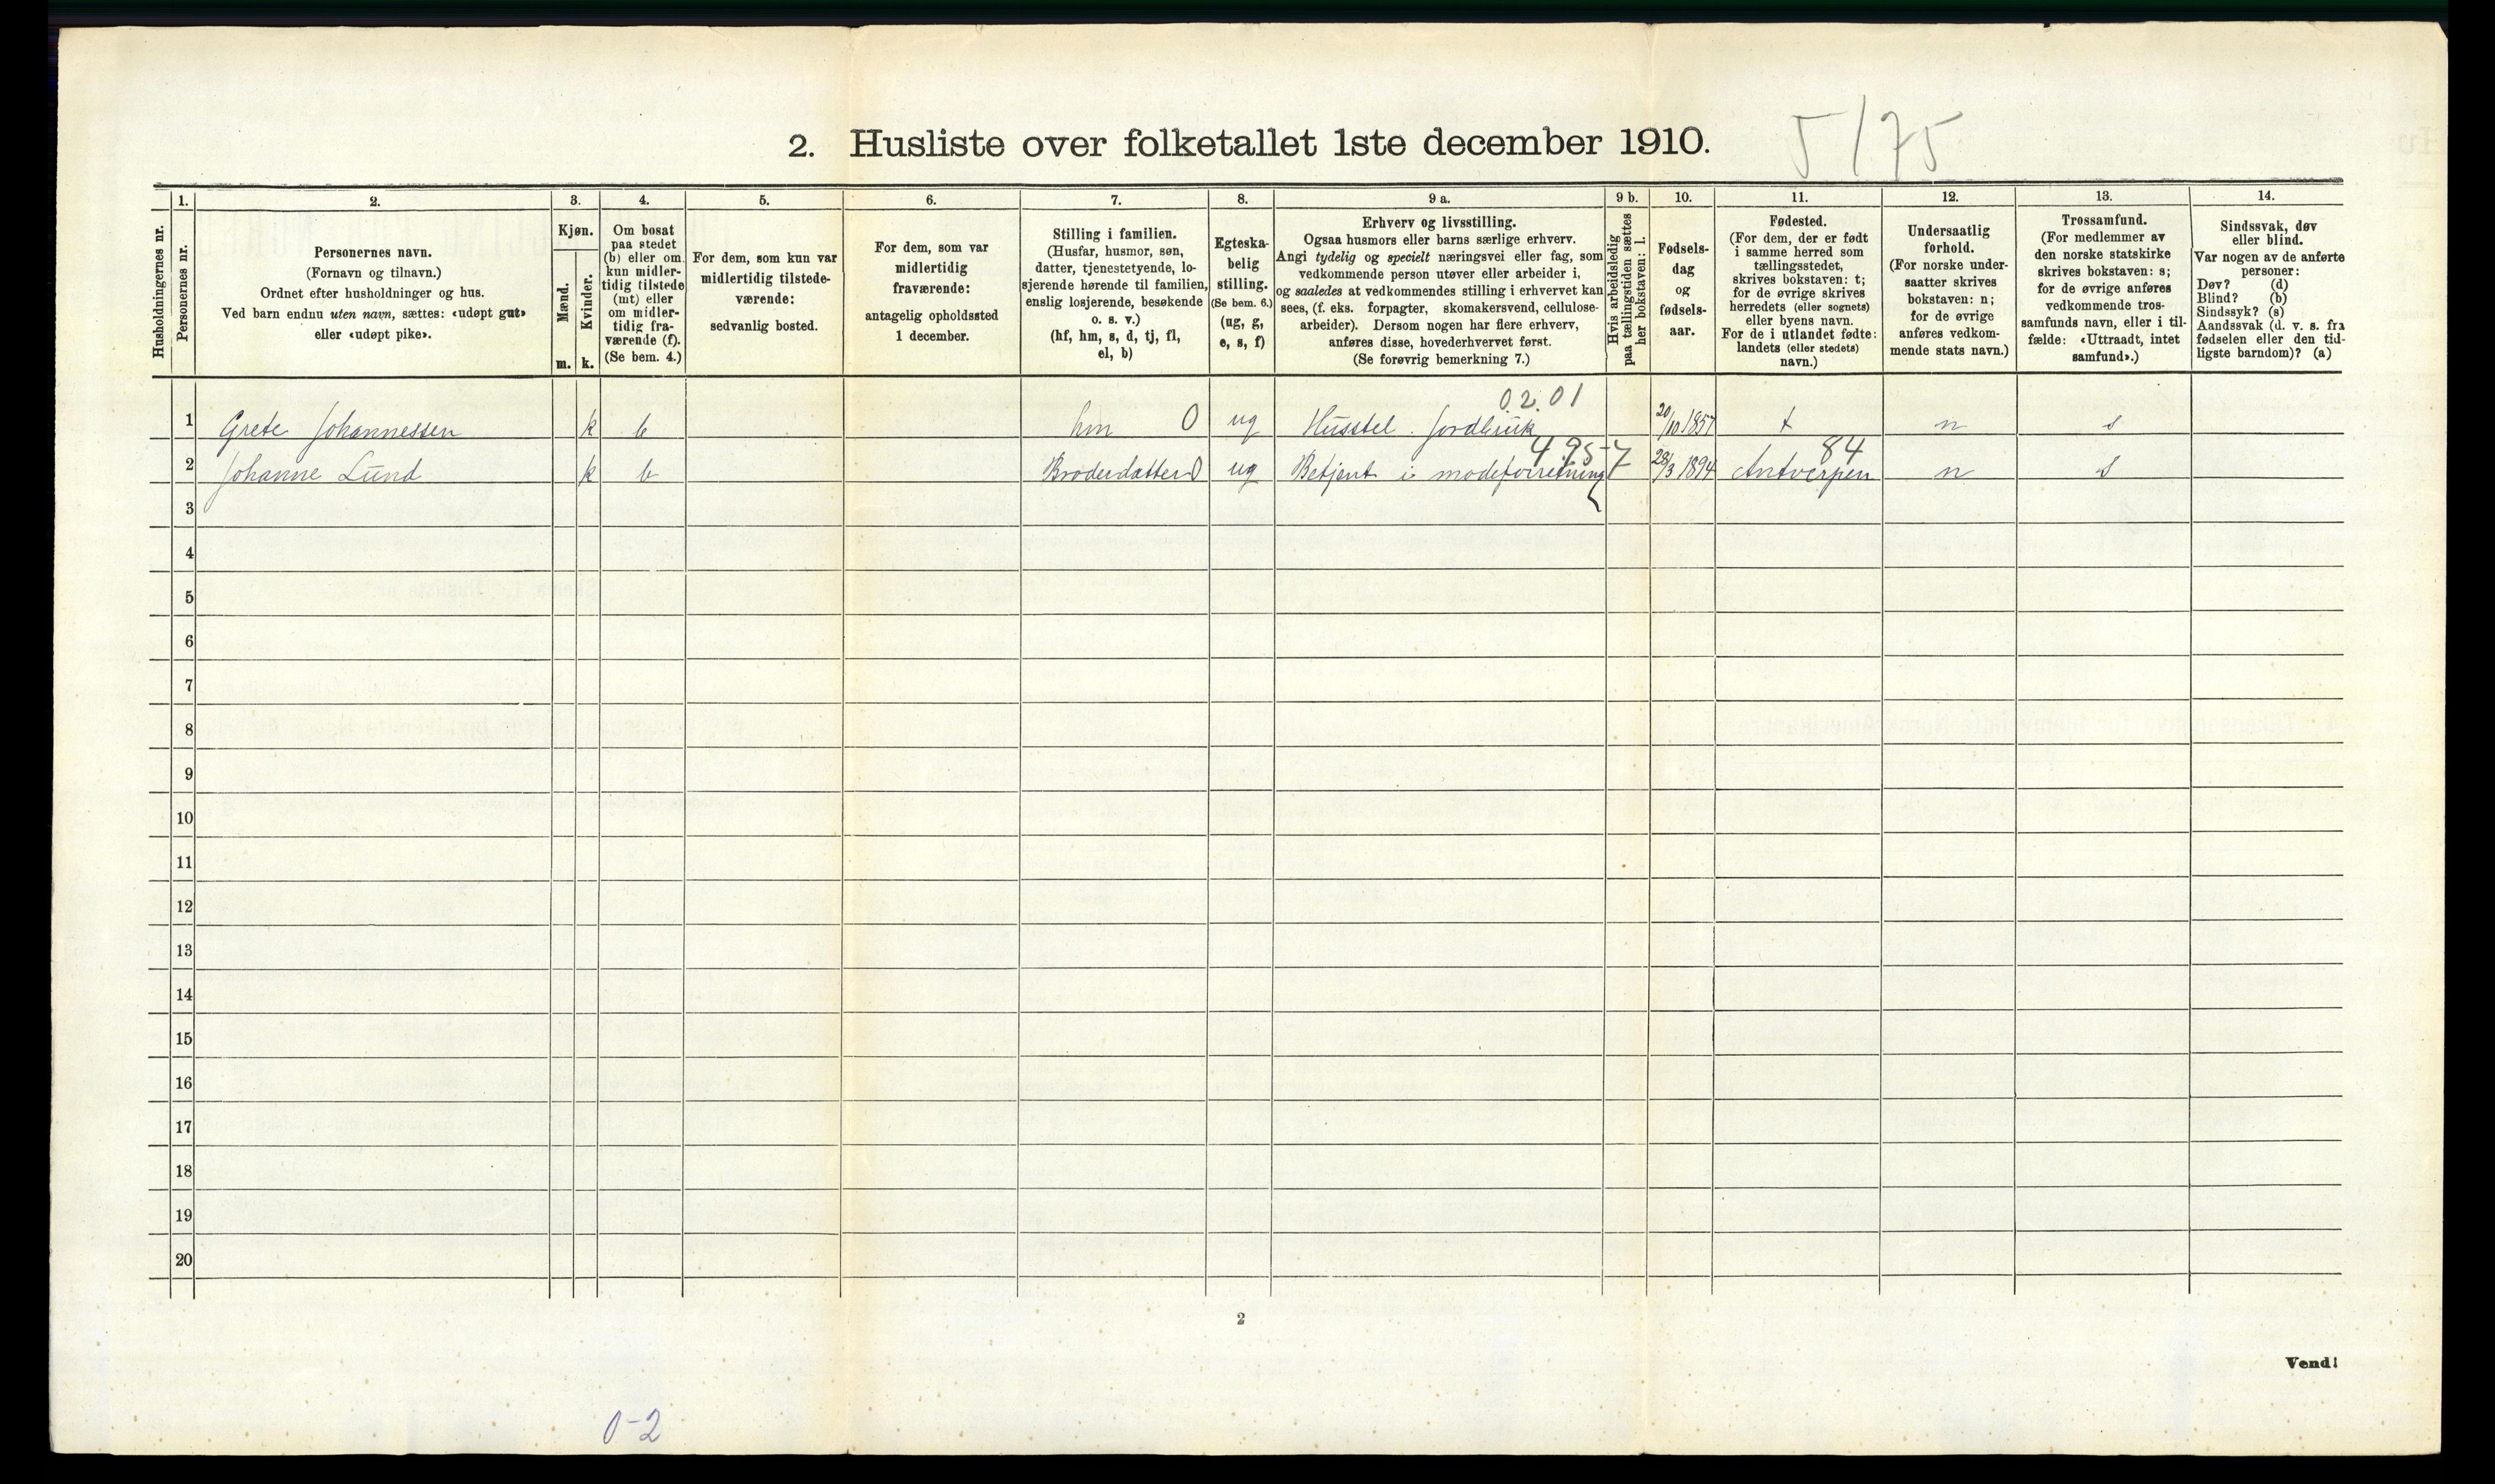 2. Husliste over folketallet 1ste december 1910.
5/75
Husholdningernes nr.
1.
Personernes nr.
2.
Personernes navn.
(Fornavn og tilnavn.)
Ordnet efter husholdninger og hus.
Ved barn endnu uten navn, sættes: «udøpt gut»
eller «udøpt pike».
3.
Kjøn.
Mænd.
Kvinder.
m. k.
4.
Om bosat
paa stedet
(b) eller om
kun midler-
tidig tilstede
(mt) eller
om midler-
tidig fra-
værende (f).
(Se bem. 4.)
5.
For dem, som kun var
midlertidig tilstede-
værende:
sedvanlig bosted.
6.
For dem, som var
midlertidig
fraværende:
antagelig opholdssted
1 december.
7.
Stilling i familien.
(Husfar, husmor, søn,
datter, tjenestetyende, lo-
sjerende hørende til familien,
enslig losjerende, besøkende
o. s. v.)
(hf, hm, s, d, tj, fl,
el, b)
8.
Egteska-
belig
stilling.
(Se bem. 6.)
(ug, g,
e, s, f)
9 a.
Erhverv og livsstilling.
Ogsaa husmors eller barns særlige erhverv.
Angi tydelig og specielt næringsvei eller fag, som
vedkommende person utøver eller arbeider i,
og saaledes at vedkommendes stilling i erhvervet kan
sees, (f. eks. forpagter, skomakersvend, cellulose-
arbeider). Dersom nogen har flere erhverv,
anføres disse, hovederhvervet først.
(Se forøvrig bemerkning 7.)
9 b.
Hvis arbeidsledig
paa tællingstiden sættes
her bokstaven: l.
10.
Fødsels-
dag
og
fødsels-
aar.
11.
Fødested.
(For dem, der er født
i samme herred som
tællingsstedet,
skrives bokstaven: t;
for de øvrige skrives
herredets (eller sognets)
eller byens navn.
For de i utlandet fødte:
landets (eller stedets)
navn.)
12.
Undersaatlig
forhold.
(For norske under-
saatter skrives
bokstaven: n;
for de øvrige
anføres vedkom-
mende stats navn.)
13.
Trossamfund.
(For medlemmer av
den norske statskirke
skrives bokstaven: s;
for de øvrige anføres
vedkommende tros-
samfunds navn, eller i til-
fælde: «Uttraadt, intet
samfund».)
14.
Sindssvak, døv
eller blind.
Var nogen av de anførte
personer:
Døv? (d)
Blind? (b)
Sindssyk? (s)
Aandssvak (d. v. s. fra
fødselen eller den tid-
ligste barndom)? (a)
02.01
1 Grete Johannessen k b hm 0 ug Husstel. Jordbruk 20/10 1857 t n s
495-7 84
2 Johanne Lund k b Broderdatter 0 ug Betjent i modeforretning 28/3 1894 Antverpen n s
3
4
5
6
7
8
9
10
11
12
13
14
15
16
17
18
19
20
2
Vend!
0-2